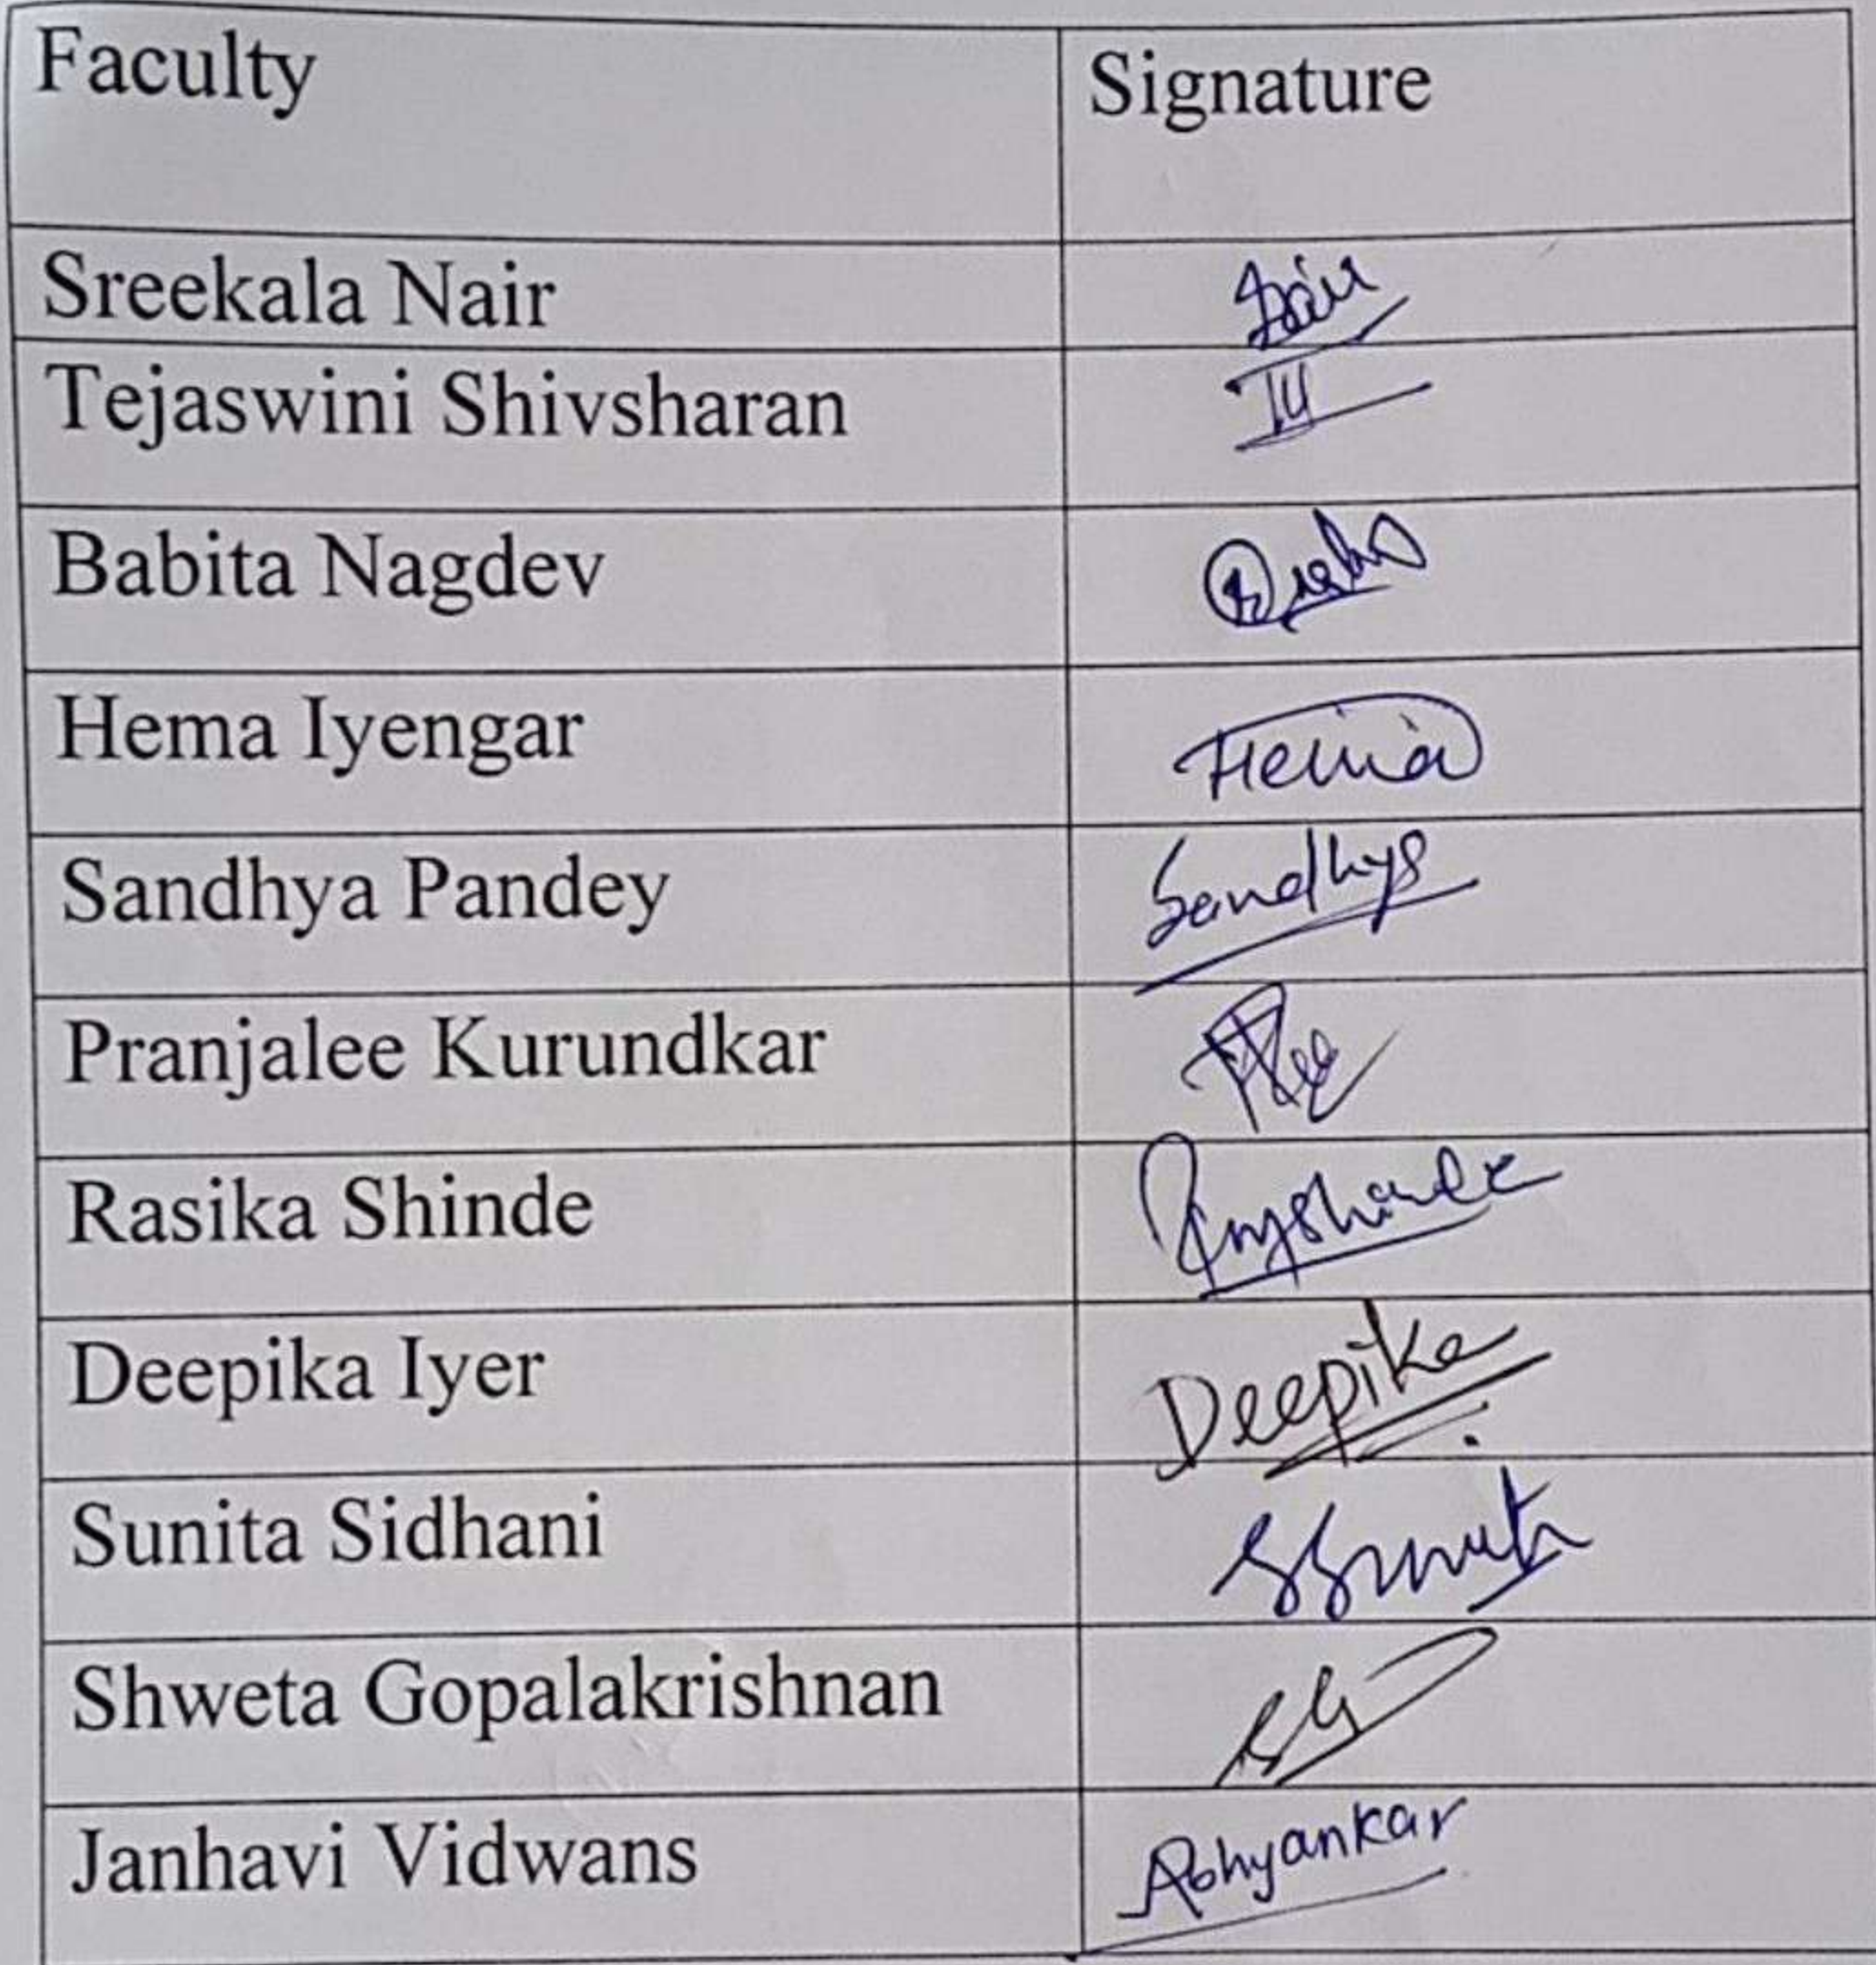 Faculty Signature
Sreekala Nair
Tejaswini Shivsharan
Babita Nagdev
Hema Iyengar Hema
Sandhya Pandey Sandhya
Pranjalee Kurundkar
Rasika Shinde
Deepika Iyer Deepika
Sunita Sidhani
Shweta Gopalakrishnan
Janhavi Vidwans Abhyankar